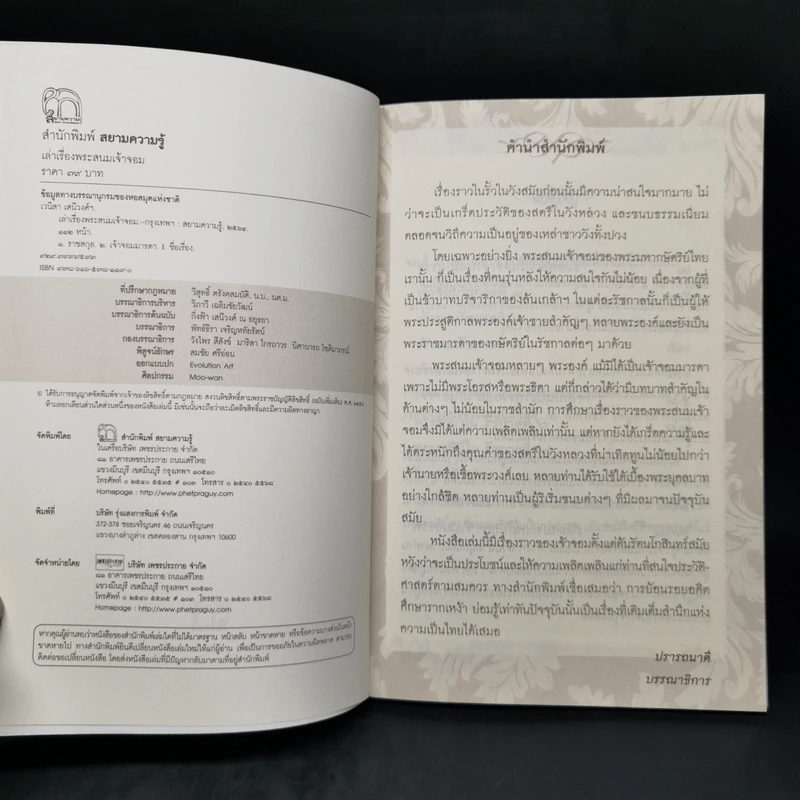 สยามความรู้
สำนักพิมพ์ สยามความรู้
เล่าเรื่องพระสนมเจ้าจอม
ราคา ๗๙ บาท
ข้อมูลทางบรรณานุกรมของหอสมุดแห่งชาติ
เวนิสา เสนีวงศ์ฯ.
เล่าเรื่องพระสนมเจ้าจอม.--กรุงเทพฯ : สยามความรู้, ๒๕๖๔.
๑๑๒ หน้า.
๑. ราชสกุล. ๒. เจ้าจอมมารดา. I. ชื่อเรื่อง.
ISBN ๙๗๘-๖๑๖-๕๗๘-๑๑๙-๐
ที่ปรึกษากฎหมาย วิสุทธิ์ ตรังคสมบัติ, น.บ., นศ.ม.
บรรณาธิการบริหาร วิภาวี เฉลิมชัยวัฒน์
บรรณาธิการต้นฉบับ กิ่งฟ้า เสนีวงศ์ ณ อยุธยา
บรรณาธิการ พัทธ์ธีรา เจริญหทัยรัตน์
กองบรรณาธิการ วังไพร สีสังข์ มาริสา ไกรถาวร นิศานารถ โชติมากรณ์
พิสูจน์อักษร สมชัย ศรีย่อน
ออกแบบปก Evolution Art
ศิลปกรรม Moo-wan
© ได้รับการอนุญาตจัดพิมพ์จากเจ้าของลิขสิทธิ์ตามกฎหมาย สงวนลิขสิทธิ์ตามพระราชบัญญัติลิขสิทธิ์ (ฉบับเพิ่มเติม) พ.ศ. ๒๕๕๘
ห้ามลอกเลียนส่วนใดส่วนหนึ่งของหนังสือเล่มนี้ มิเช่นนั้นจะถือว่าละเมิดลิขสิทธิ์และมีความผิดทางอาญา
จัดพิมพ์โดย สำนักพิมพ์ สยามความรู้
ในเครือบริษัท เพชรประกาย จำกัด
๘๑ อาคารเพชรประกาย ถนนเสรีไทย
แขวงมีนบุรี เขตมีนบุรี กรุงเทพฯ ๑๐๕๑๐
โทรศัพท์ ๐ ๒๕๔๐ ๕๕๓๕ # ๑๐๓ โทรสาร ๐ ๒๕๔๐ ๕๕๖๘
Homepage : http://www.phetpraguy.com
พิมพ์ที่ บริษัท รุ่งแสงการพิมพ์ จำกัด
372-378 ซอยเจริญนคร 46 ถนนเจริญนคร
แขวงบางลำภูล่าง เขตคลองสาน กรุงเทพฯ 10600
จัดจำหน่ายโดย เพชรประกาย บริษัท เพชรประกาย จำกัด
๘๑ อาคารเพชรประกาย ถนนเสรีไทย
แขวงมีนบุรี เขตมีนบุรี กรุงเทพฯ ๑๐๕๑๐
โทรศัพท์ ๐ ๒๕๔๐ ๕๕๓๕ # ๑๐๓ โทรสาร ๐ ๒๕๔๐ ๕๕๖๘
Homepage : http://www.phetpraguy.com
หากคุณผู้อ่านพบว่าหนังสือของสำนักพิมพ์เล่มใดที่ไม่ได้มาตรฐาน หน้าสลับ หน้าขาดหาย หรือข้อความบางส่วนในหน้า
ขาดหายไป ทางสำนักพิมพ์ยินดีเปลี่ยนหนังสือเล่มใหม่ให้แก่ผู้อ่าน เพื่อเป็นการขออภัยในความผิดพลาด สามารถ
ติดต่อขอเปลี่ยนหนังสือ โดยส่งหนังสือเล่มที่มีปัญหากลับมาตามที่อยู่สำนักพิมพ์
คำนำสำนักพิมพ์
เรื่องราวในรั้วในวังสมัยก่อนนั้นมีความน่าสนใจมากมาย ไม่
ว่าจะเป็นเกร็ดประวัติของสตรีในวังหลวง และขนบธรรมเนียม
ตลอดจนวิถีความเป็นอยู่ของเหล่าชาววังทั้งปวง
โดยเฉพาะอย่างยิ่ง พระสนมเจ้าจอมของพระมหากษัตริย์ไทย
เรานั้น ก็เป็นเรื่องที่คนรุ่นหลังให้ความสนใจกันไม่น้อย เนื่องจากผู้ที่
เป็นข้าบาทบริจาริกาของล้นเกล้าฯ ในแต่ละรัชกาลนั้นก็เป็นผู้ให้
พระประสูติกาลพระองค์เจ้าชายสำคัญๆ หลายพระองค์และยังเป็น
พระราชมารดาของกษัตริย์ในรัชกาลต่อๆ มาด้วย
พระสนมเจ้าจอมหลายๆ พระองค์ แม้มิได้เป็นเจ้าจอมมารดา
เพราะไม่มีพระโอรสหรือพระธิดา แต่ก็กล่าวได้ว่ามีบทบาทสำคัญใน
ด้านต่างๆ ไม่น้อยในราชสำนัก การศึกษาเรื่องราวของพระสนมเจ้า
จอมจึงมิได้แต่ความเพลิดเพลินเท่านั้น แต่หากยังได้เกร็ดความรู้และ
ได้ตระหนักถึงคุณค่าของสตรีในวังหลวงที่น่าเทิดทูนไม่น้อยไปกว่า
เจ้านายหรือเชื้อพระวงศ์เลย หลายท่านได้รับใช้ใต้เบื้องพระยุคลบาท
อย่างใกล้ชิด หลายท่านเป็นผู้ริเริ่มขนบต่างๆ ที่มีผลมาจนปัจจุบัน
สมัย
หนังสือเล่มนี้มีเรื่องราวของเจ้าจอมตั้งแต่ต้นรัตนโกสินทร์สมัย
หวังว่าจะเป็นประโยชน์และให้ความเพลิดเพลินแก่ท่านที่สนใจประวัติ-
ศาสตร์ตามสมควร ทางสำนักพิมพ์เชื่อเสมอว่า การย้อนรอยอดีต
ศึกษารากเหง้า ย่อมรู้เท่าทันปัจจุบันนั้นเป็นเรื่องที่เติมเต็มสำนึกแห่ง
ความเป็นไทยได้เสมอ
ปรารถนาดี
บรรณาธิการ